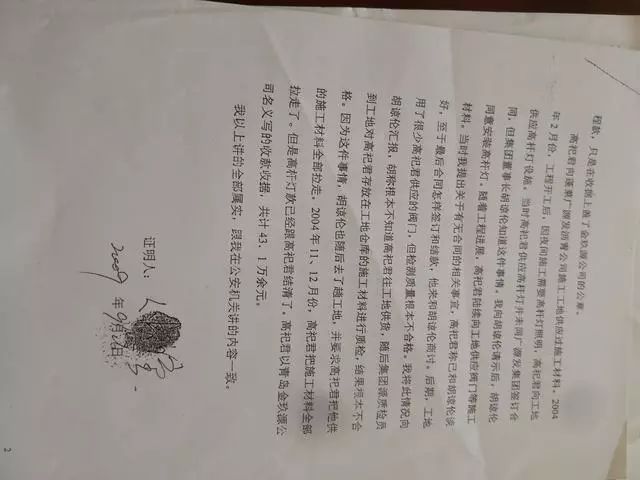 程款，只是在收据上盖了金玖源公司的公章。
高祀君向蓬莱广源发沥青公司施工工地供应过施工材料。2004
年2月份，工程开工后，因夜间施工需要高杆灯照明，高祀君向工地
供应高杆灯设施。当时高祀君供应高杆灯并未同广源发集团签订合
同，但集团董事长胡谅伦知道这件事情。我向胡谅伦请示后，胡谅伦
同意安装高杆灯。随着工程进展，高祀君陆续向工地供应阀门等施工
材料。当时我提出关于有无合同的相关事宜，高祀君称已和胡谅伦谈
好，至于最后合同怎样签订和结款，他来和胡谅伦商讨。后期，工地
用了很少高祀君供应的阀门，但检测质量根本不合格。我将此情况向
胡谅伦汇报，胡称根本不知道高祀君往工地供货，随后集团派质检员
到工地对高祀君存放在工地仓库的施工材料进行质检，结果根本不合
格。因为这件事情，胡谅伦也随后去了趟工地，并要求高祀君把他供
的施工材料全部拉走。2004年11、12月份，高祀君把施工材料全部
拉走了。但是高杆灯款已经跟高祀君结清了。高祀君以青岛金玖源公
司名义写的收款收据，共计43.1万余元。
我以上讲的全部属实，跟我在公安机关讲的内容一致。
证明人：
2009年9月28日
2